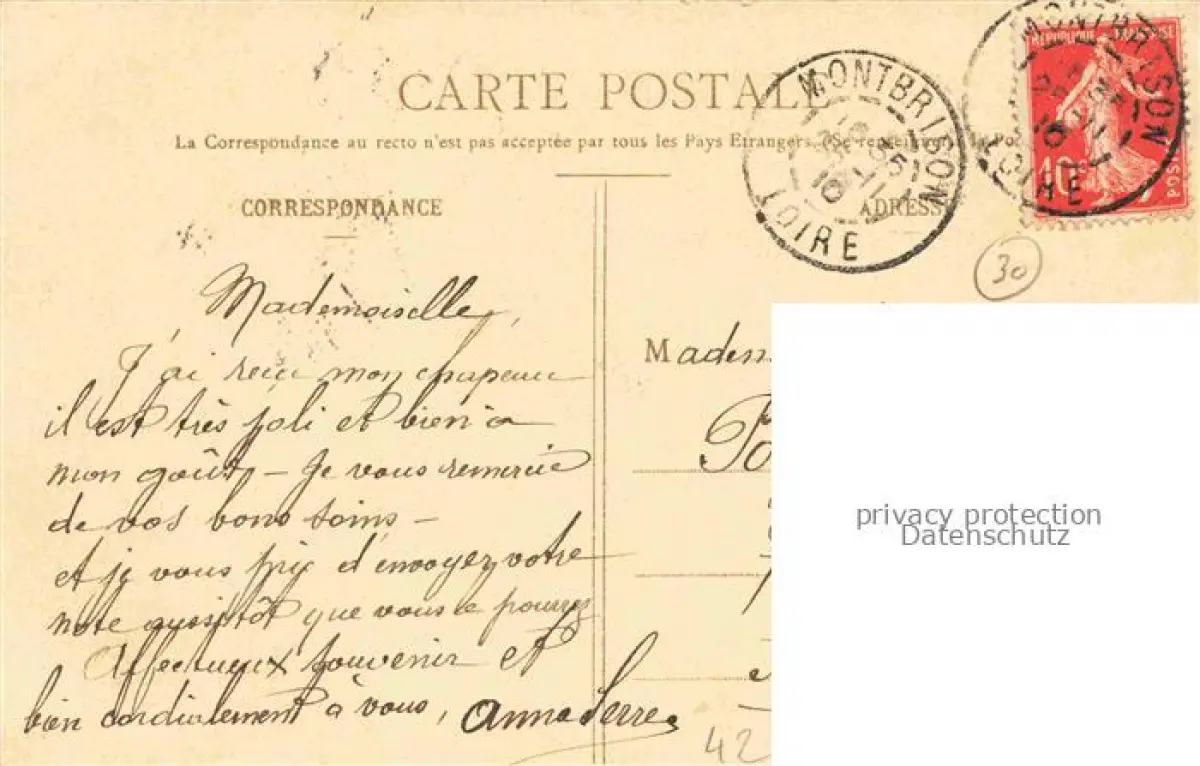 CARTE POSTALE
La Correspondance au recto n'est pas acceptée par tous les Pays Etrangers. (Se renseigner à la Pos
CORRESPONDANCE
ADRESS
MONTBRISON
LOIRE
MONTBRISON
LOIRE
REPUBLIQUE FRANÇAISE
10
POST
30
Mademoiselle,
J'ai reçu mon chapeau
il est très joli et bien à
mon goût – Je vous remercie
de vos bons soins –
et je vous prie d'envoyez votre
note aussitôt que vous le pourrez
Affectueux souvenir et
bien cordialement à vous, Anna Serre
Madem
42
privacy protection
Datenschutz